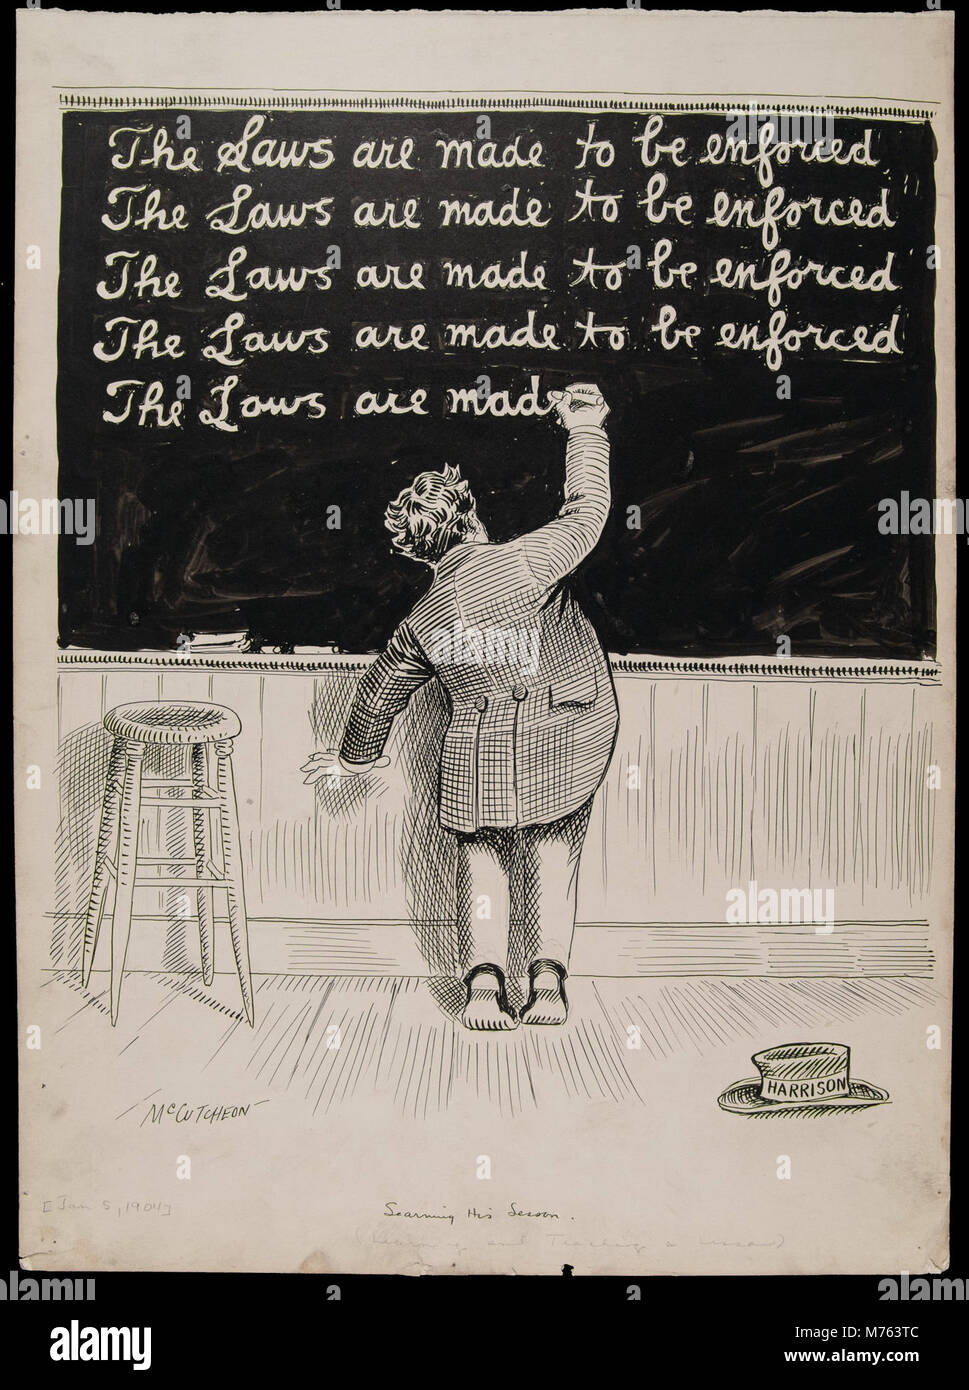 The Laws are made to be enforced
The Laws are made to be enforced
The Laws are made to be enforced
The Laws are made to be enforced
The Laws are mad
HARRISON
McCUTCHEON
[Jan 5, 1904]
Learning His Lesson.
(Learning and Teaching a Lesson)
alamy
alamy stock photo
M763TC
www.alamy.com